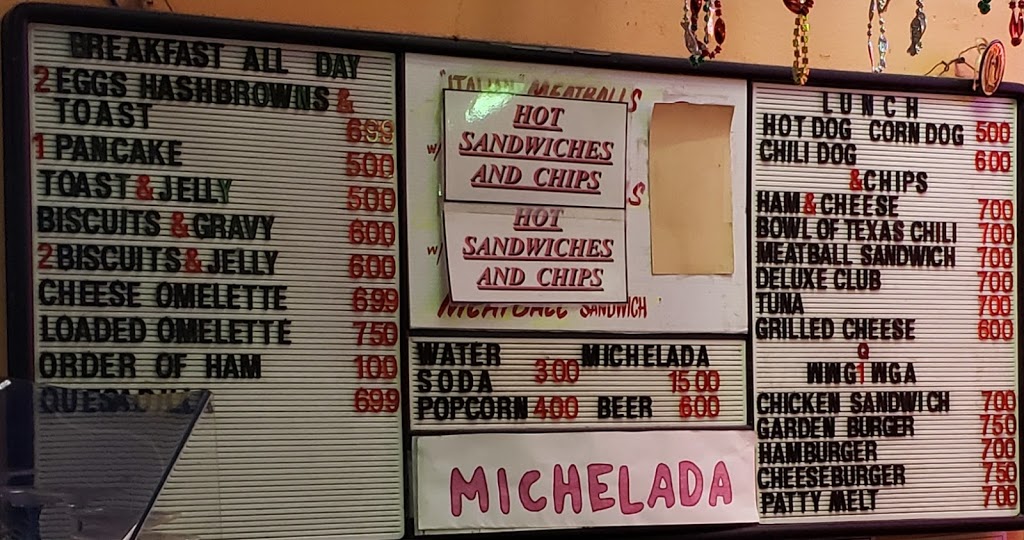 BREAKFAST ALL DAY
2 EGGS HASHBROWNS &
TOAST 699
1 PANCAKE 500
TOAST & JELLY 500
BISCUITS & GRAVY 600
2 BISCUITS & JELLY 600
CHEESE OMELETTE 699
LOADED OMELETTE 750
ORDER OF HAM 100
699
"ITALIAN" MEATBALLS
HOT
SANDWICHES
AND CHIPS
HOT
SANDWICHES
AND CHIPS
w/
w/
MEATBALL SANDWICH
WATER MICHELADA
SODA 300 1500
POPCORN 400 BEER 600
MICHELADA
LUNCH
HOT DOG CORN DOG 500
CHILI DOG 600
& CHIPS
HAM & CHEESE 700
BOWL OF TEXAS CHILI 700
MEATBALL SANDWICH 700
DELUXE CLUB 700
TUNA 700
GRILLED CHEESE 600
Q
WWG1WGA
CHICKEN SANDWICH 700
GARDEN BURGER 750
HAMBURGER 700
CHEESEBURGER 750
PATTY MELT 700